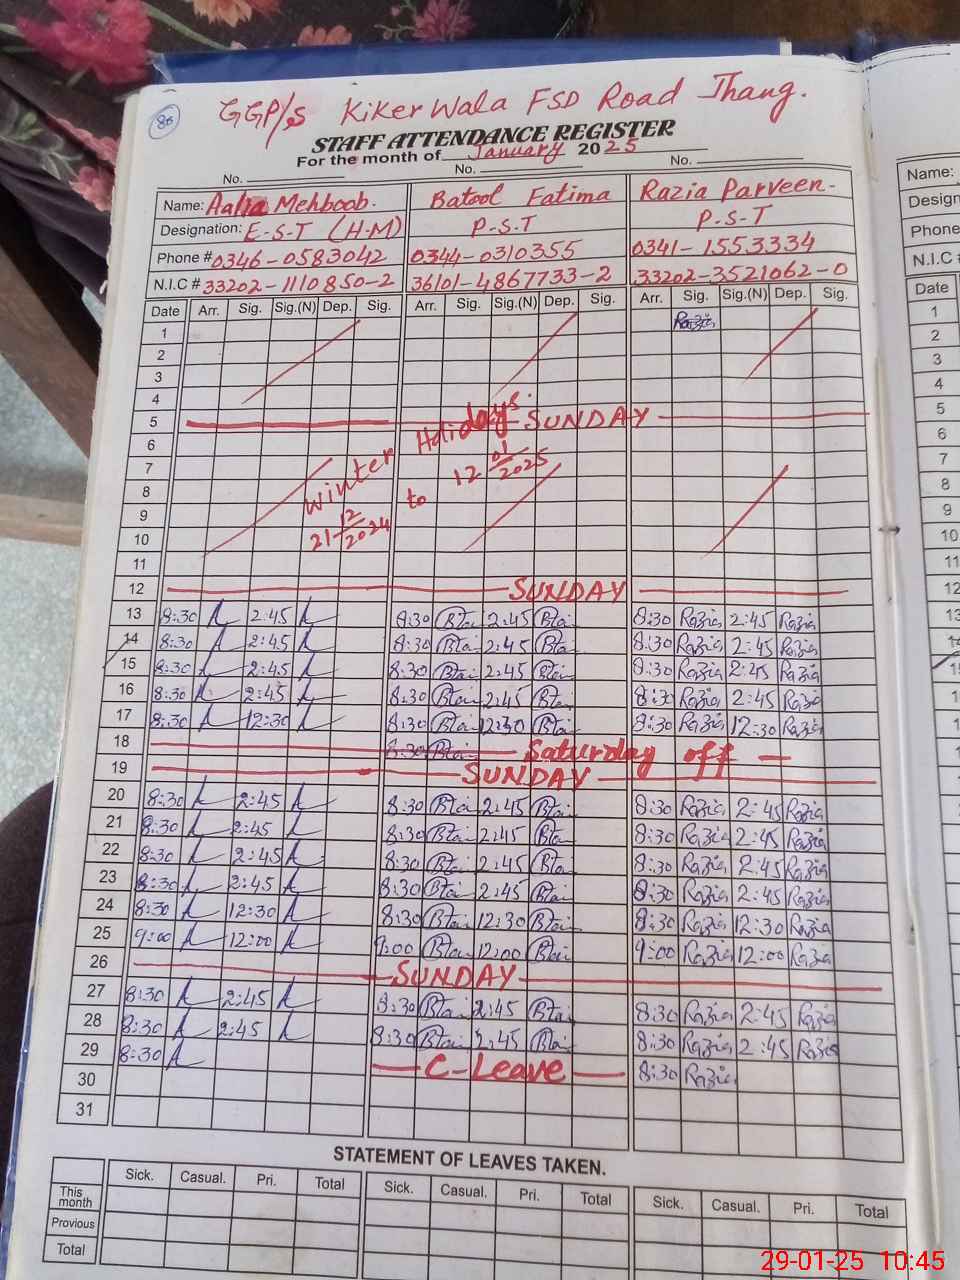 86
GGP/s Kiker Wala FSD Road Jhang.
STAFF ATTENDANCE REGISTER
For the month of January 2025
No. No. No.
Name: Aalia Mehboob. Batool Fatima Razia Parveen.
Designation: E-S-T (H-M) P.S.T P-S-T
Phone # 0346-0583042 0344-0310355 0341-1553334
N.I.C # 33202-1110850-2 36101-4867733-2 33202-3521062-0
Date Arr. Sig. Sig.(N) Dep. Sig. Arr. Sig. Sig.(N) Dep. Sig. Arr. Sig. Sig.(N) Dep. Sig.
1 Razia
2
3
4
5 SUNDAY
6
7
8
9
10
11
Winter Holidays.
21 12/2024 to 12 01/2025
12 SUNDAY
13 8:30 2:45 8:30 Btai 2:45 Btai 8:30 Razia 2:45 Razia
14 8:30 2:45 8:30 Btai 2:45 Btai 8:30 Razia 2:45 Razia
15 8:30 2:45 8:30 Btai 2:45 Btai 8:30 Razia 2:45 Razia
16 8:30 2:45 8:30 Btai 2:45 Btai 8:30 Razia 2:45 Razia
17 8:30 12:30 8:30 Btai 12:30 Btai 8:30 Razia 12:30 Razia
18 8:30 Btai Saturday off
19 SUNDAY
20 8:30 2:45 8:30 Btai 2:45 Btai 8:30 Razia 2:45 Razia
21 8:30 2:45 8:30 Btai 2:45 Btai 8:30 Razia 2:45 Razia
22 8:30 2:45 8:30 Btai 2:45 Btai 8:30 Razia 2:45 Razia
23 8:30 2:45 8:30 Btai 2:45 Btai 8:30 Razia 2:45 Razia
24 8:30 12:30 8:30 Btai 12:30 Btai 8:30 Razia 12:30 Razia
25 9:00 12:00 9:00 Btai 12:00 Btai 9:00 Razia 12:00 Razia
26 SUNDAY
27 8:30 2:45 8:30 Btai 2:45 Btai 8:30 Razia 2:45 Razia
28 8:30 2:45 8:30 Btai 2:45 Btai 8:30 Razia 2:45 Razia
29 8:30 C-Leave 8:30 Razia
30
31
STATEMENT OF LEAVES TAKEN.
Sick. Casual. Pri. Total Sick. Casual. Pri. Total Sick. Casual. Pri. Total
This month
Provious
Total
Name:
Design
Phone
N.I.C #
Date
1
2
3
4
5
6
7
8
9
10
11
12
13
29-01-25 10:45